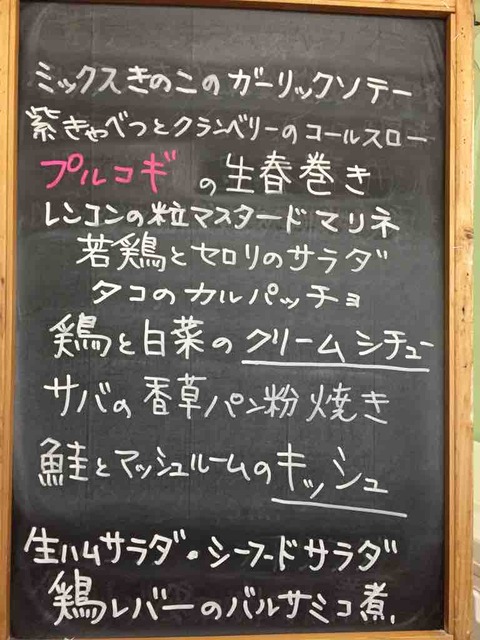 ミックスきのこのガーリックソテー
紫きゃべつとクランベリーのコールスロー
プルコギの生春巻き
レンコンの粒マスタードマリネ
若鶏とセロリのサラダ
タコのカルパッチョ
鶏と白菜のクリームシチュー
サバの香草パン粉焼き
鮭とマッシュルームのキッシュ
生ハムサラダ・シーフードサラダ
鶏レバーのバルサミコ煮